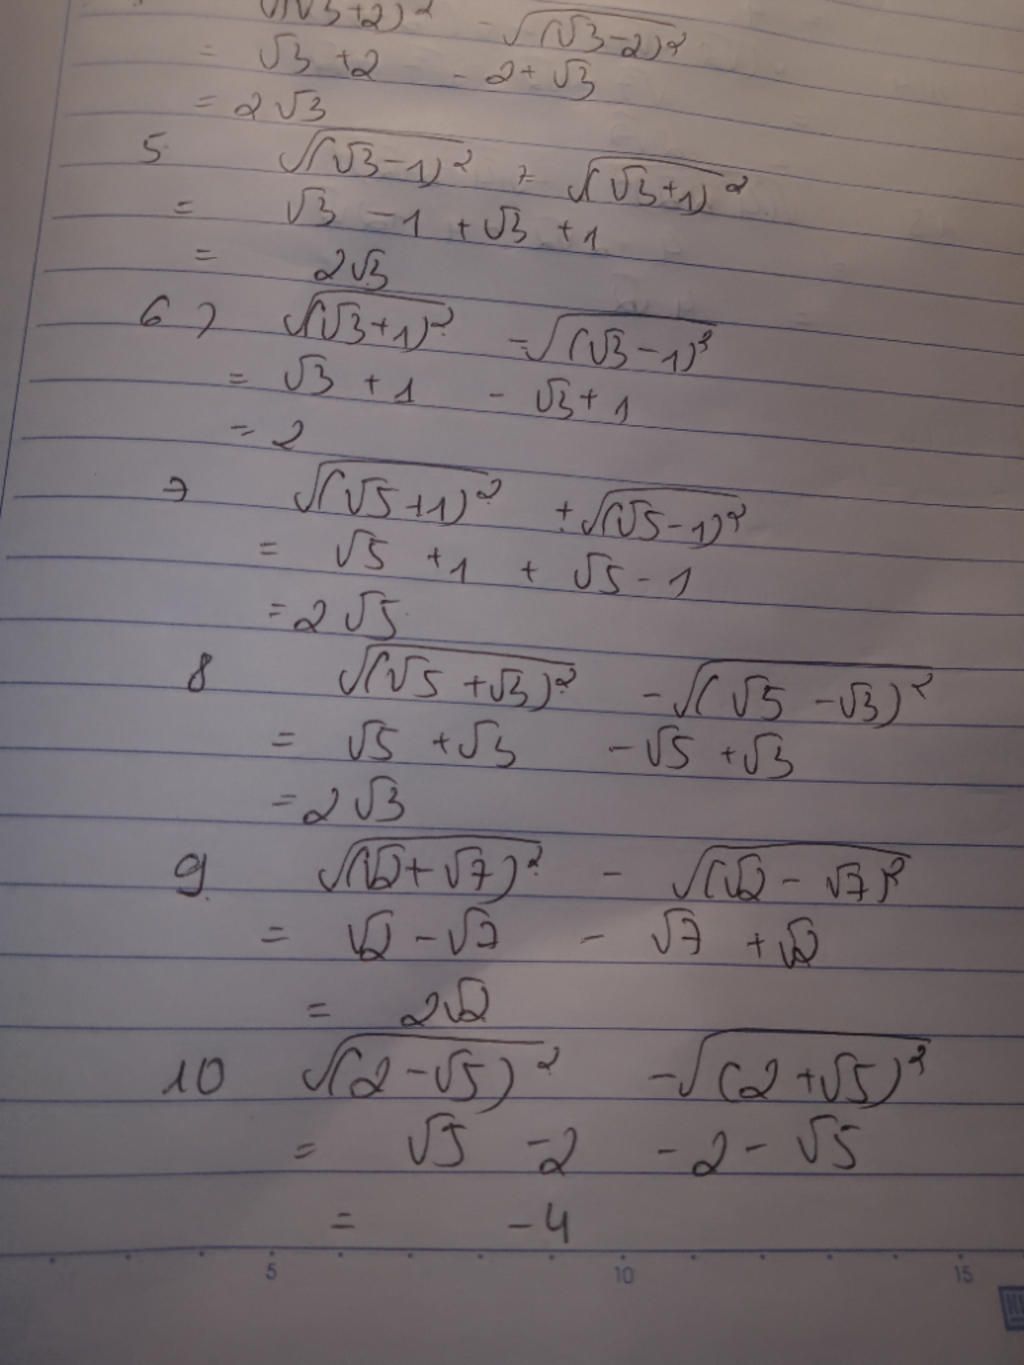 √(√3+2)² - √(√3-2)²
= √3 +2 - 2+ √3
= 2√3
5 √(√3-1)² + √(√3+1)²
= √3 -1 +√3 +1
= 2√3
6) √(√3+1)² -√(√3-1)²
= √3 +1 - √3+1
= 2
7 √(√5+1)² +√(√5-1)²
= √5 +1 + √5-1
=2√5
8 √(√5+√3)² -√(√5-√3)²
= √5 +√3 -√5 +√3
=2√3
9 √(√2+√7)² - √(√2-√7)²
= √2 -√7 - √7 +√2
= 2√2
10 √(2-√5)² -√(2+√5)²
= √5 -2 -2-√5
= -4
5 10 15